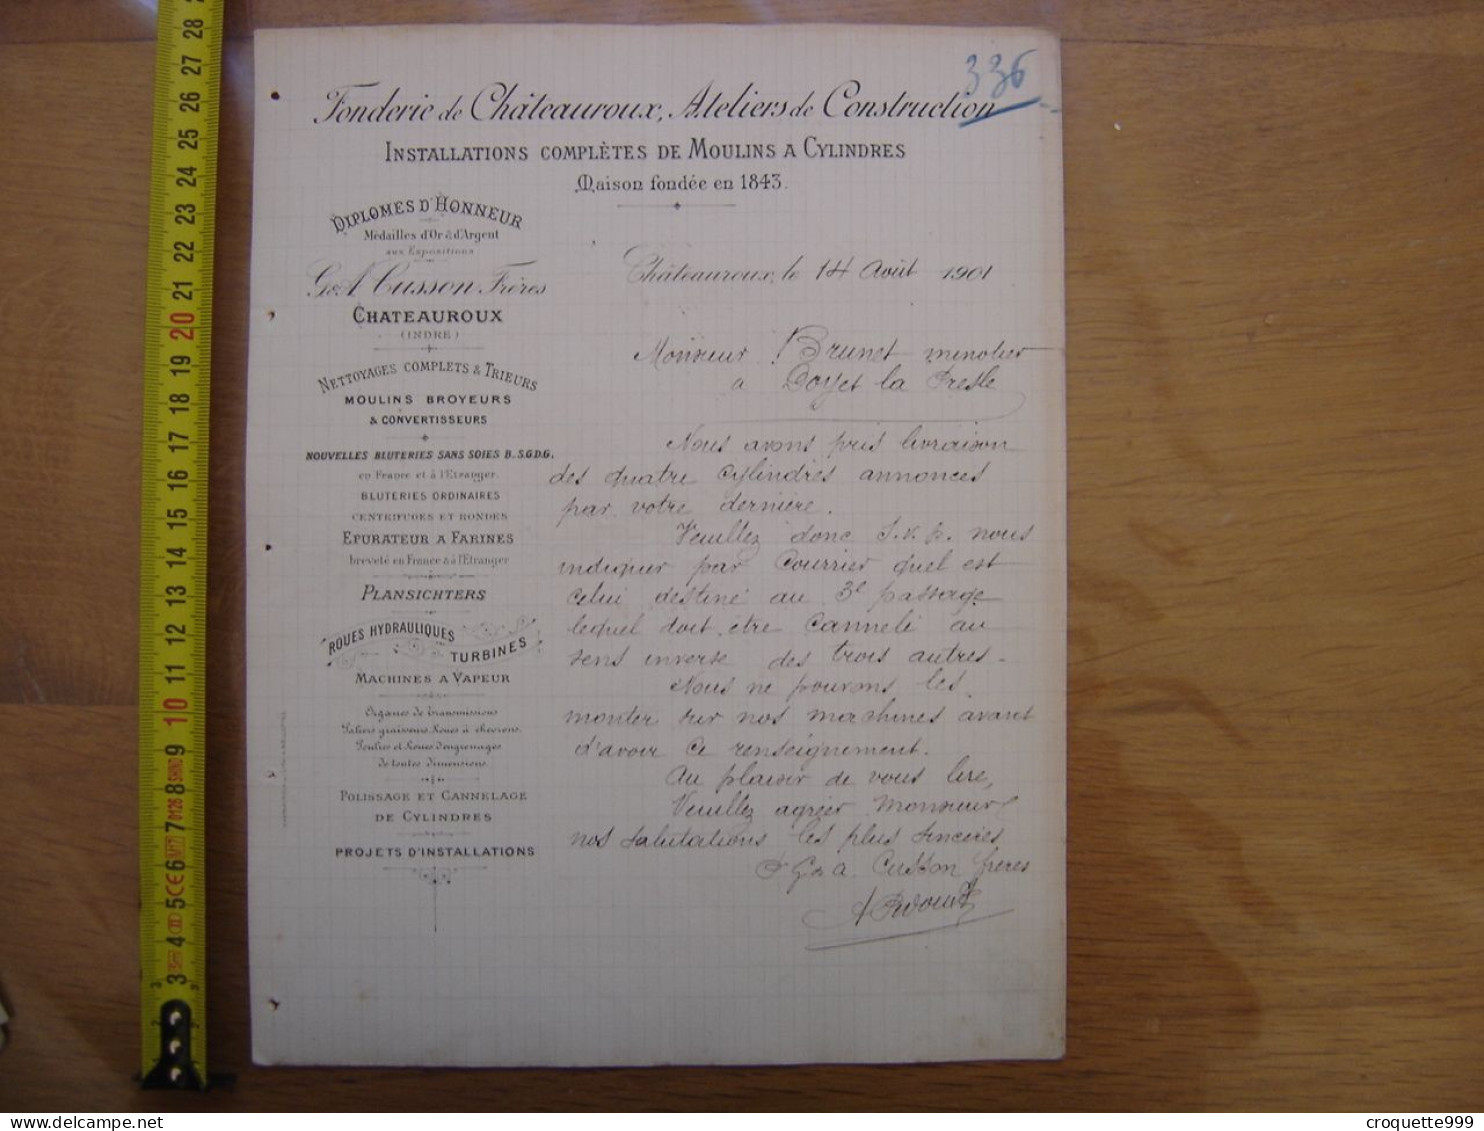 336
Fonderie de Châteauroux, Ateliers de Construction
INSTALLATIONS COMPLÈTES DE MOULINS A CYLINDRES
Maison fondée en 1843.
DIPLOMES D'HONNEUR
Médailles d'Or & d'Argent
aux Expositions
G. & A. Cusson Frères
CHATEAUROUX
(INDRE)
NETTOYAGES COMPLETS & TRIEURS
MOULINS BROYEURS
& CONVERTISSEURS
NOUVELLES BLUTERIES SANS SOIES B.S.G.D.G.
en France et à l'Etranger.
BLUTERIES ORDINAIRES
CENTRIFUGES ET RONDES
EPURATEUR A FARINES
breveté en France & à l'Etranger
PLANSICHTERS
ROUES HYDRAULIQUES
TURBINES
MACHINES A VAPEUR
Organes de Transmissions
Paliers graisseurs, Roues à chevrons,
Poulies et Roues d'engrenages
de toutes dimensions.
POLISSAGE ET CANNELAGE
DE CYLINDRES
PROJETS D'INSTALLATIONS
Châteauroux, le 14 Août 1901
Monsieur Brunet minotier
a Doyet la Presle
Nous avons pris livraison
des quatre cylindres annoncés
par votre dernière.
Veuillez donc S.v.p. nous
indiquer par courrier quel est
celui destiné au 3e passage
lequel doit etre cannelé au
sens inverse des trois autres.
Nous ne pouvons les
monter sur nos machines avant
d'avoir ce renseignement.
Au plaisir de vous lire,
Veuillez agréer Monsieur
nos salutations les plus sincères
P G & A. Cusson frères
28
27
26
25
24
23
22
21
20
19
18
17
16
15
14
13
12
11
10
9
8
7
6
5
4
3
croquette999